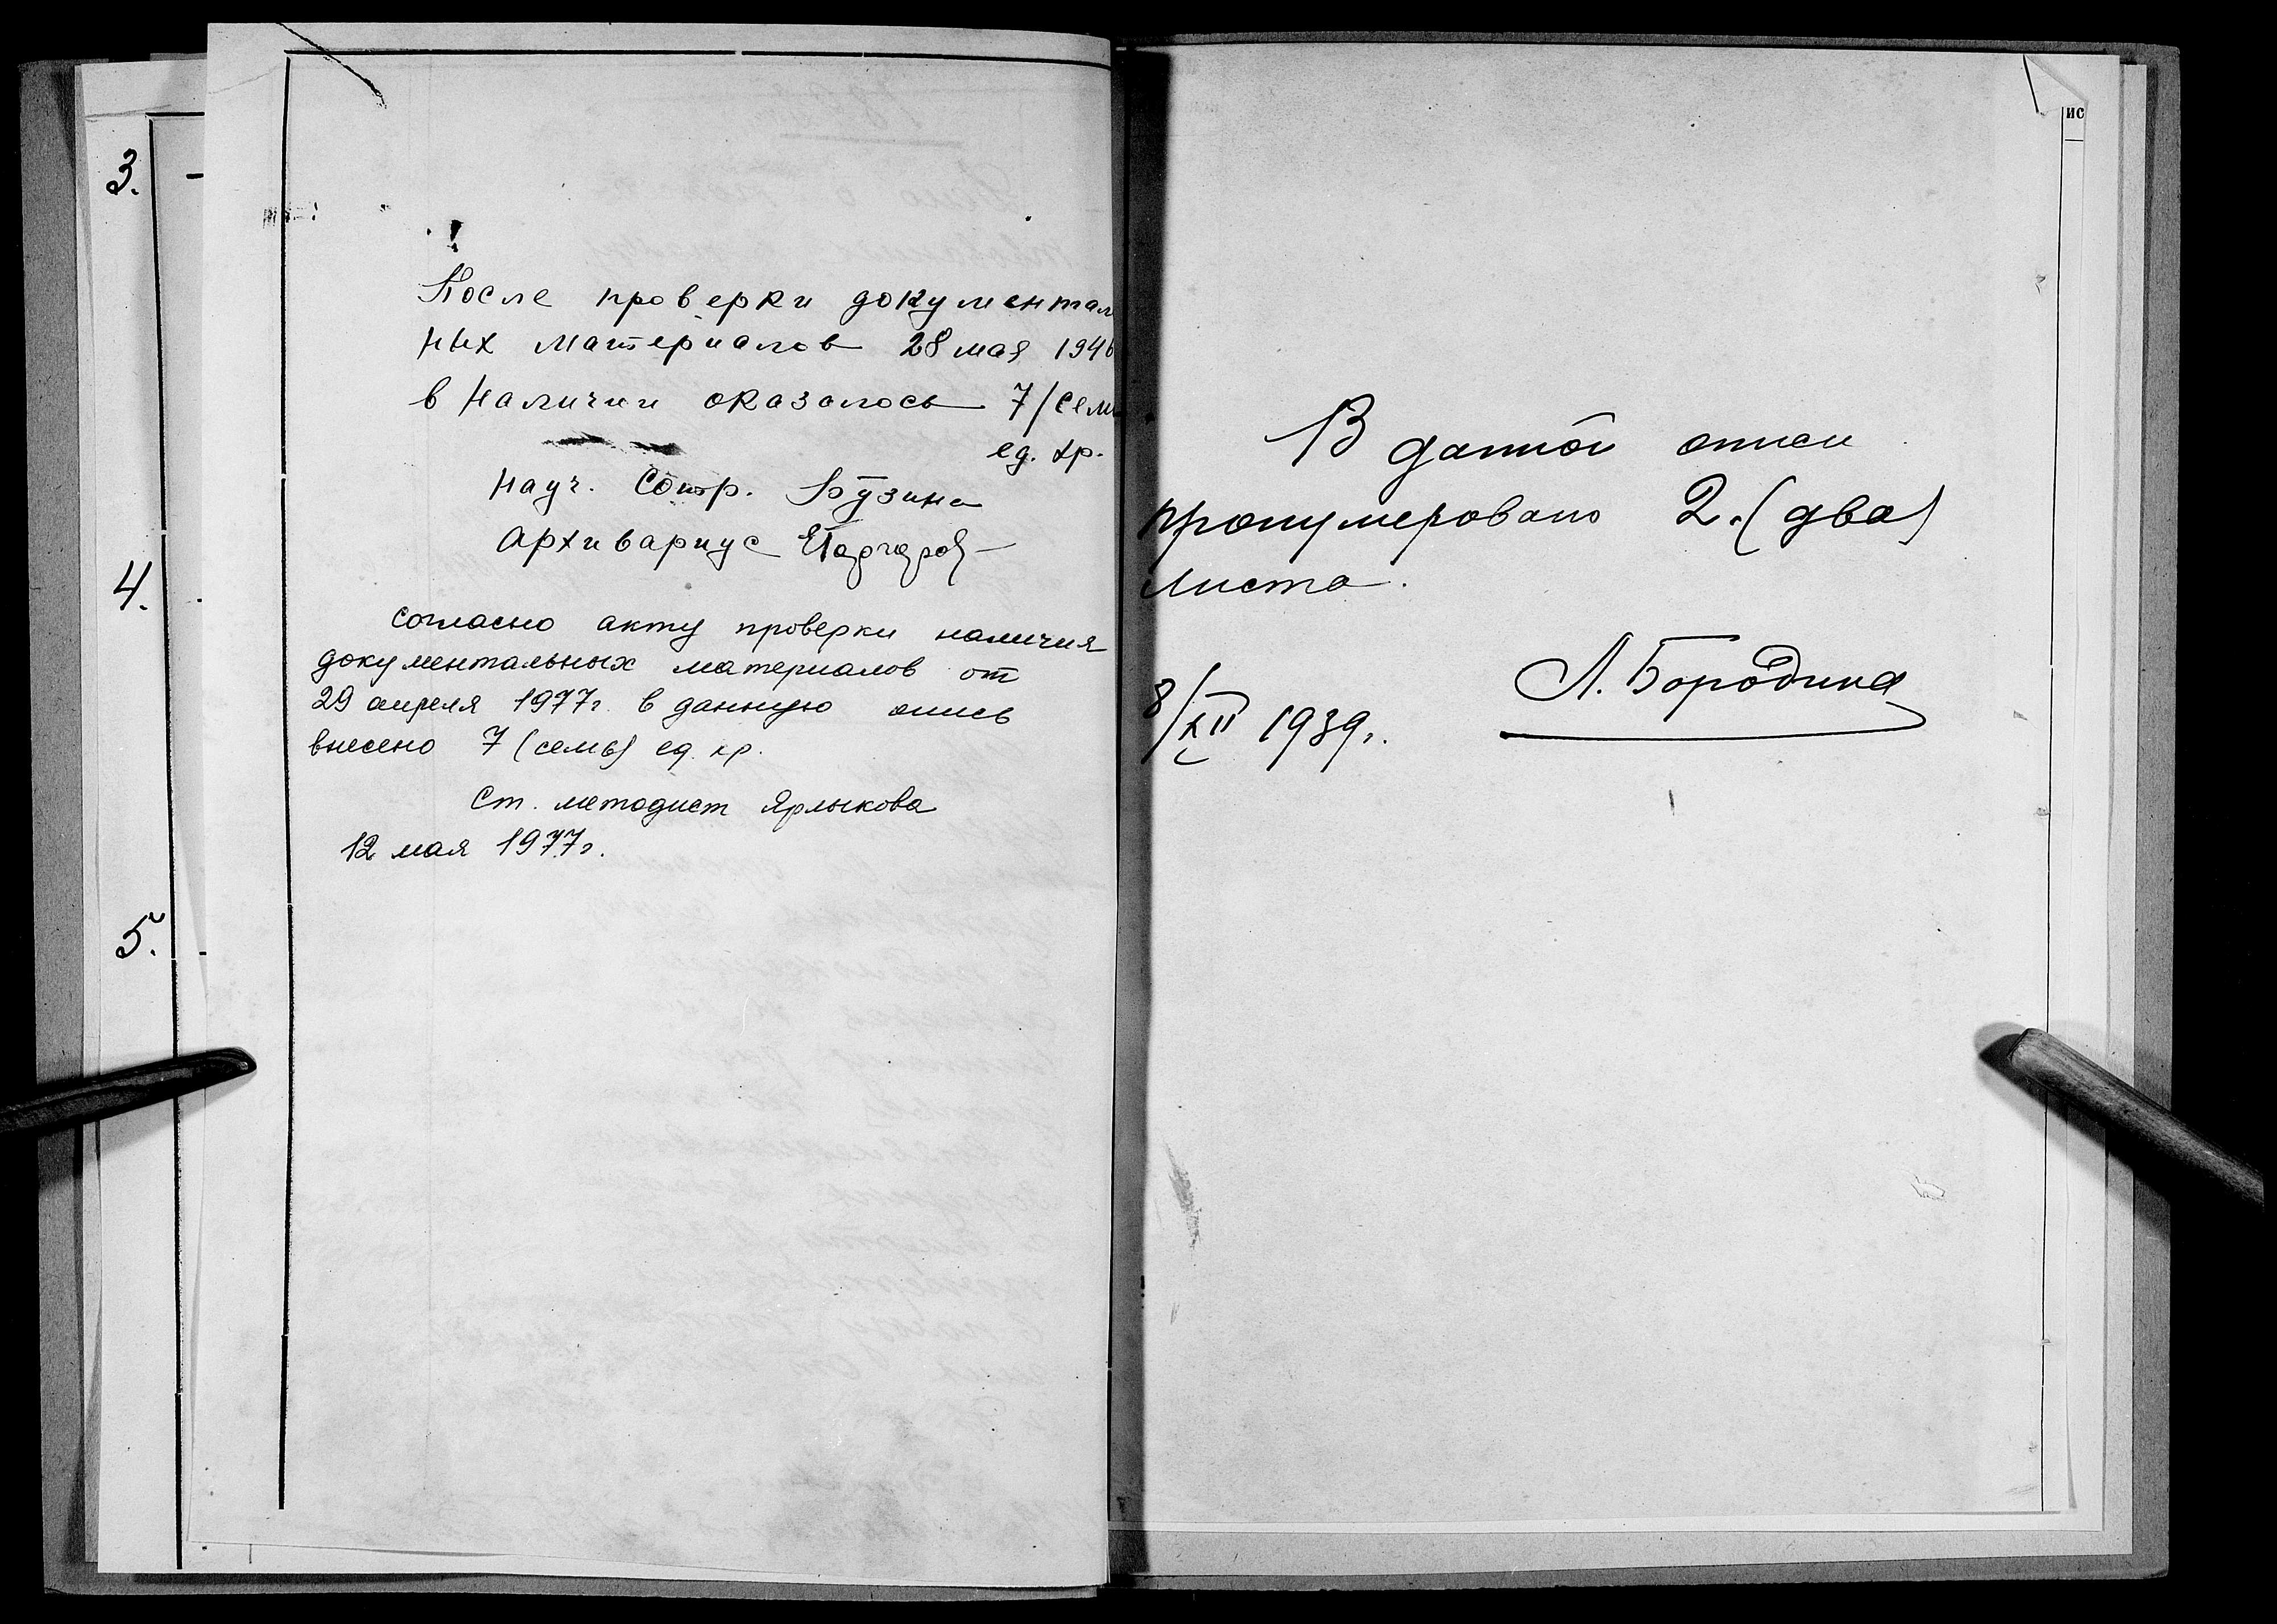 3.
4.
5.
После проверки документал
ных материалов 28 мая 1946
в наличии оказалось 7 /семь
ед. хр.
Науч. Сотр. Бузина
Архивариус
согласно акту проверки наличия
документальных материалов от
29 апреля 1977г. в данную опись
внесено 7 (семь) ед. хр.
Ст. методист Ярлыкова
12 мая 1977г.
В данной описи
пронумеровано 2. (два)
листа.
Л. Бородина
8/XII 1939г.
ис